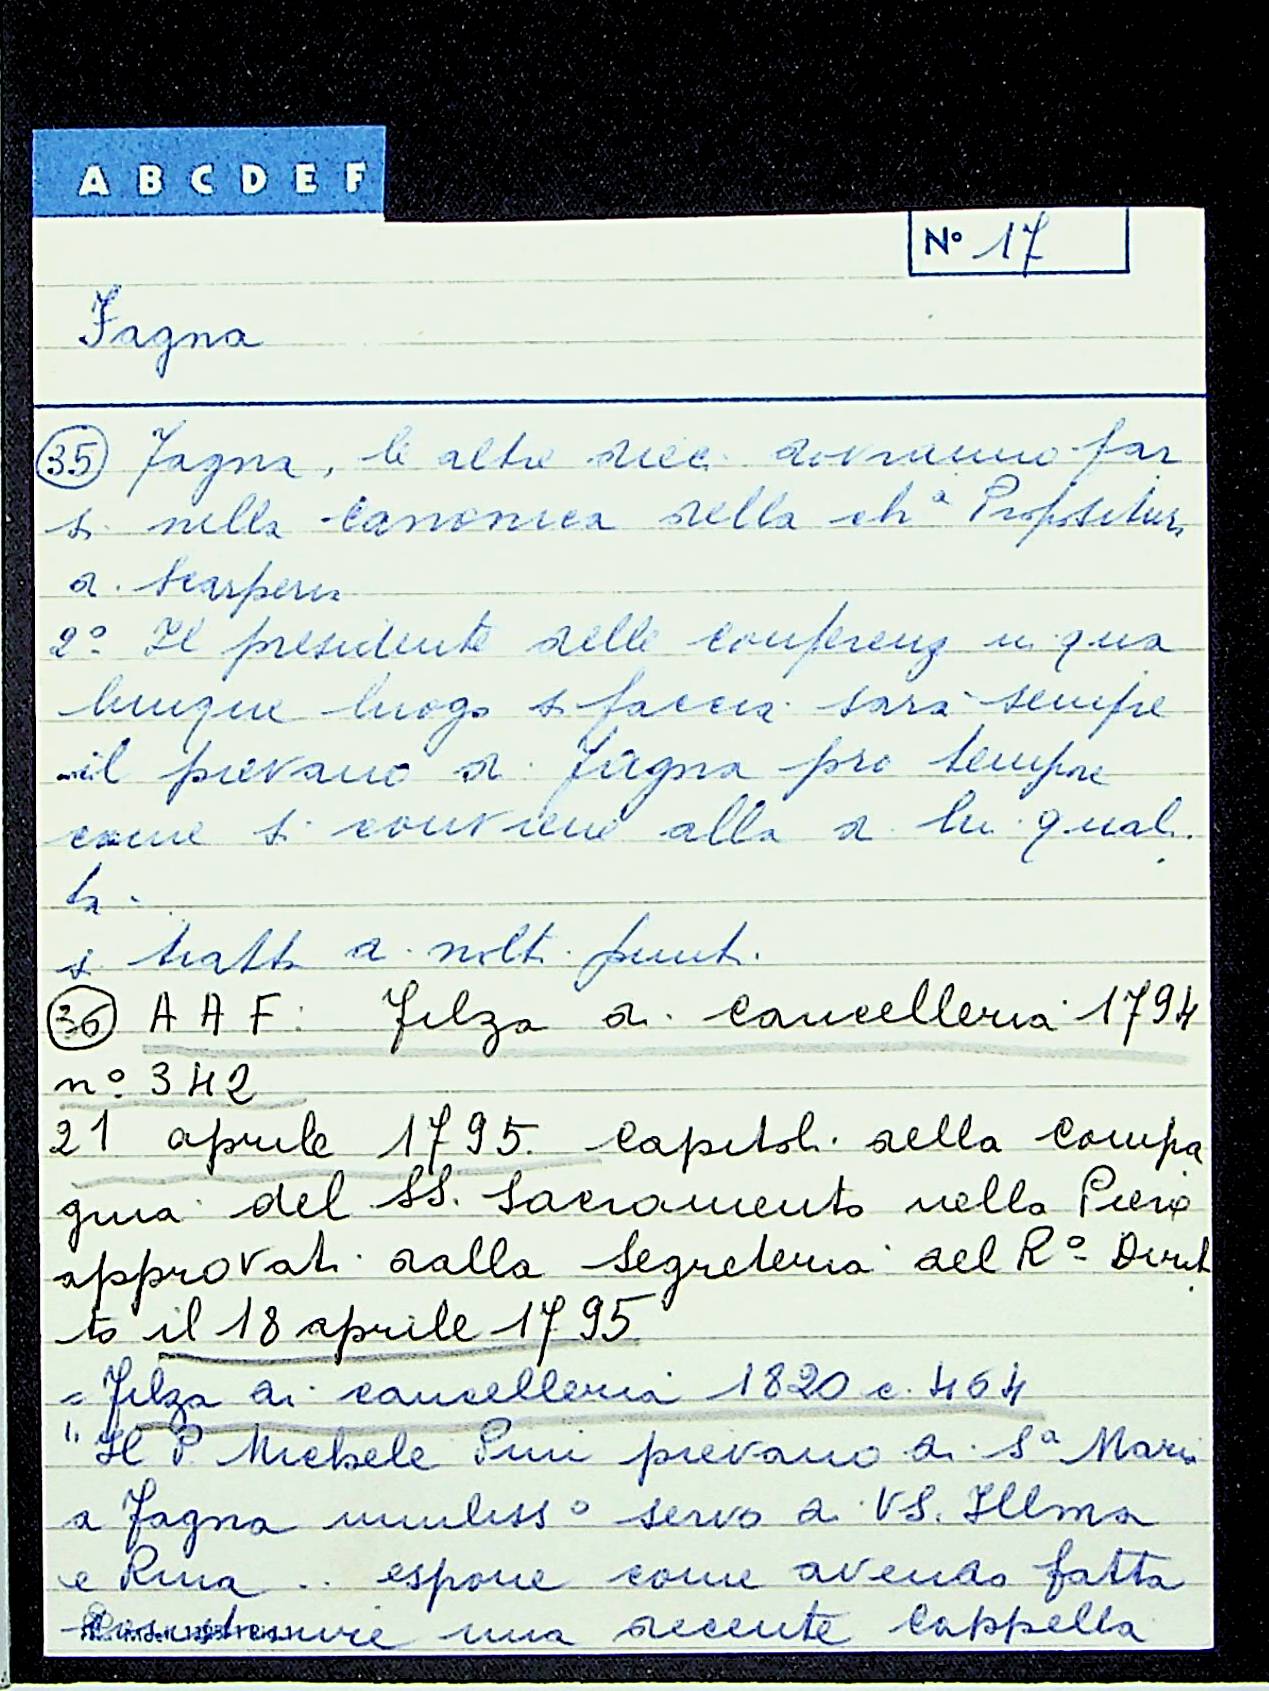 A B C D E F
Nº 17
Fagna
35 Fagna, le altre dieci dovranno far
si nella canonica della chª Propositura
di Scarperia
2º Il presidente delle conferenz in qua
lunque luogo si faccia sarà sempre
il pievano di Fagna pro tempore
come si conviene alla di lui quali
tà.
si tratta di molti punti.
36 A A F: Filza di cancelleria 1794
nº 342
21 aprile 1795. Capitoli della compa
gnia del SS. Sacramento nella Pieve
approvati dalla Segreteria del Rº Dirit
to il 18 aprile 1795
= Filza di cancelleria 1820 c. 464
"Il P. Michele Pini pievano di Sª Maria
a Fagna umilissº servo di VS. Illma
e Rma .. espone come avendo fatta
costruire una decente cappella